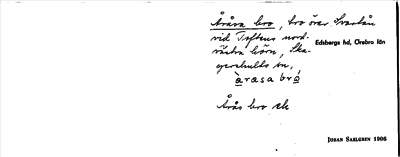 Åråsa bro, bro över Svartån
vid Toftens nord-
västra hörn, Ska-
gershults sn,
Edsbergs hd, Örebro län
àrasa bró
Årås bro ek
JOHAN SAHLGREN 1906